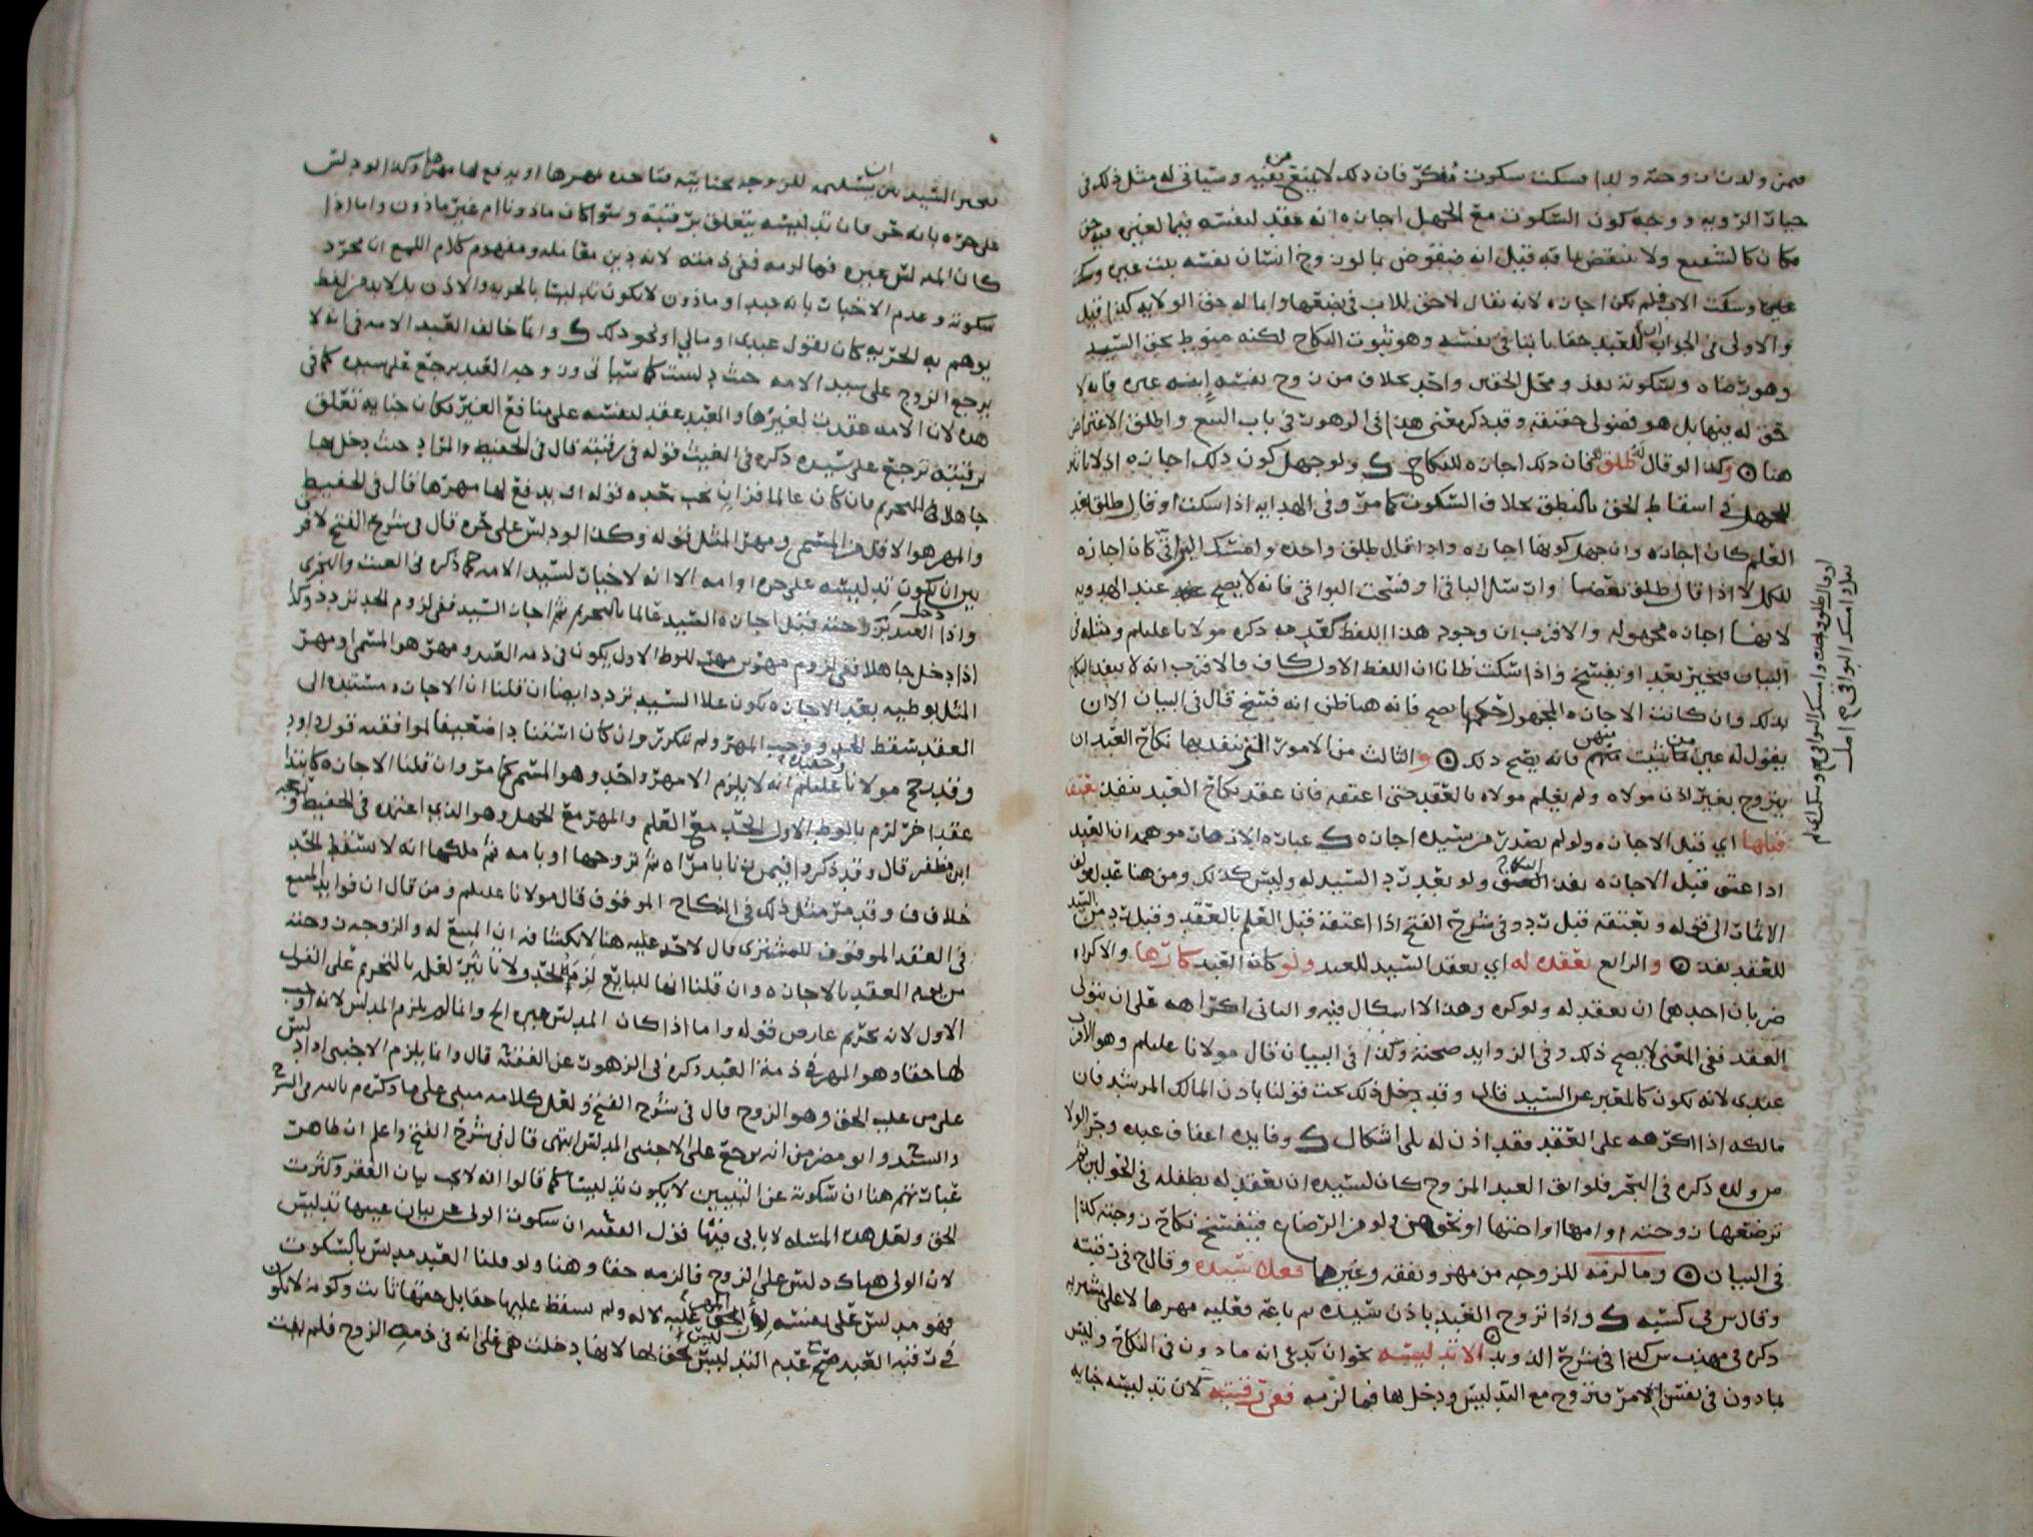 فيمن ولدت زوجته ولدا فسكت سكوت مُفكّر فان ذلك لا يمنع من نفيه وسياتي له مثل ذلك في
خيار الرويه ووجه كون السكوت مع الجهل اجازه انه عقد لنفسه فيما لغيره فيه حق
فكان كالشفيع ولا ينتقض ما قيل انه منقوض بما لو زوج انسان نفسه بنت غيره وسكت
وسكت الاب فلم يكن اجازه لانه يقال لا حق للاب في بضعها وانما له حق الولايه كذا قيل
والاولى في الجواب ان للعبد حقا ثابتا في نفسه وهو ثبوت النكاح لكنه منوط بحق السيد
وهو رضاه وبسكوته نفذ ومحل الحقين واحد بخلاف من زوج نفسه ابنه غيره فانه لا
حق له فيها بل هو فضولي حقيقه وقد ذكر معنى هذا في الزهور في باب البيع واطلق الاعتراض
هنا وكذا لو قال له طلق فان ذلك اجازه للنكاح ولو جهل كون ذلك اجازه اذ لا تاثير
للجهل في اسقاط الحق بالنطق بخلاف السكوت كما مر وفي الهدايه اذا سكت او قال طلق بعد
العلم كان اجازه وان جهل كونها اجازه واذا قال طلق واحده وامسك البواقي كان اجازه
للكل لا اذا قال طلق بعضها وارسل الباقي او فسخت البواقي فانه لا يصح عند الهدويه
لانها اجازه مجهوله والاقرب ان وجود هذا اللفظ كعدمه ذكره مولانا عليلم ومثله في
البيان فيخير بعد او يفسخ واذا سكت ظانا ان اللفظ الاول كاف فالاقرب انه لا ينفذ النكاح
بذلك وان كانت الاجازه المجهول حكمها يصح فانه هنا ظن انه فسخ قال في البيان الا ان
يقول له عين من شئت منهن فانه يصح ذلك والثالث من الامور التي ينفذ بها نكاح العبد ان
يتزوج بغير اذن مولاه ولم يعلم مولاه بالعقد حتى اعتقه فان عقد نكاح العبد ينفذ بعتقه
قبلها اي قبل الاجازه ولو لم يصدر من سيده اجازه عبارة الازهار موهمه ان العبد
اذا عتق قبل الاجازه نفذ النكاح ولو بعد رد السيد له وليس كذلك ومن هنا عدل مولى
الاثمار الى قوله وبعتقه قبل رد وفي شرح الفتح اذا اعتقه قبل العلم بالعقد وقبل رد من السيد
للعقد نفذ والرابع بعقده له اي بعقد السيد للعبد ولو كان العبد كارها والاكراه
ضربان احدهما ان يعقد له ولو كره وهذا لا اشكال فيه والثاني اكراهه على ان يتولى
العقد ففي المغني لا يصح ذلك وفي الزوايد صحته وكذا في البيان قال مولانا عليلم وهو الاقرب
عندي لانه يكون كالمعبر عن السيد قال وقد دخل ذلك تحت قولنا باذن المالك المرشد فان
مالكه اذا اكرهه على العقد فقد اذن له بلى اشكال وفايده اعفاف عبده وجر الولا
من ولده ذكره في البحر فلو ابق العبد المزوج كان لسيده ان يعقد له بطفله في الحولين ثم
ترضعها زوجته او امها او اختها او نحوهن ولو من الرضاع فينفسخ نكاح زوجته كذا
في البيان وما لزمه للزوجه من مهر ونفقه وغيرهما فعلى سيده وقال ح في رقبته
وقال س في كسبه واذا تزوج العبد باذن سيده ثم باعه فعليه مهرها لا على مشتريه
ذكره في مهذب س كذا في شرح الذويد الا تدليسه نحو ان يدعي انه ماذون في النكاح وليس
بماذون في نفس الامر فتزوج مع التدليس ودخل بها فما لزمه ففي رقبته لان تدليسه جنايه
او قال طلق واحده وامسك البواقي
فيخير السيد بين ان يسلمه للزوجه بجنايته فتاخذه بمهرها او يدفع لها مهرها وكذا لو دلس
على حره بانه حر فان تدليسه يتعلق برقبته وسوا كان ماذونا ام غير ماذون واما اذا
كان المدلس غيره فما لزمه ففي ذمته لانه دين معامله ومفهوم كلام اللمع ان مجرد
سكوته وعدم الاخبار بانه عبد او ماذون لا يكون تدليسا بالحريه والاذن بل لا بد من لفظ
يوهم به الحريه كان يقول عبدي او مالي او نحو ذلك وانما خالف العبد الامه في انه لا
يرجع الزوج على سيد الامه حيث دلست كما سياتي وزوجه العبد يرجع على سيده كما في
هذه لان الامه عقدت لغيرها والعبد عقد لنفسه على منافع الغير فكان جنايه تتعلق
برقبته ترجع على سيده ذكره في الغيث قوله في رقبته قال في الحفيظ والمراد حيث دخل بها
جاهلا في التحريم فان كان عالما فزان يجب حده قوله او يدفع لها مهرها قال في الحفيظ
والمهر هو الاقل من المسمى ومهر المثل قوله وكذا لو دلس على حره قال في شرح الفتح لا فرق
بين ان يكون تدليسه على حره او امه الا انه لا خيار لسيد الامه كما ذكره في الغيث والنجري
واذا دخل العبد بزوجته قبل اجازه السيد عالما بالتحريم ثم اجاز السيد ففي لزوم الحد تردد وكذا
اذا دخل جاهلا ففي لزوم مهرين مهر للوطا الاول يكون في ذمه العبد ومهر هو المسمى او مهر
المثل بوطيه بعد الاجازه يكون على السيد تردد ايضا ان قلنا ان الاجازه مستنده الى
العقد سقط الحد ووجب المهر ولم يتكرر وان كان استنادا ضعيفا لموافقه قول داود
وقد رجح مولانا عليلم انه لا يلزم الا مهر واحد وهو المسمى كما مر وان قلنا الاجازه كابتدا
عقد اخر لزم بالوطا الاول الحد مع العلم والمهر مع الجهل وهو الذي اعتمده في الحفيظ
ابن مظفر قال وقد ذكروا فيمن زنا بامراه ثم تزوجها او بامه ثم ملكها انه لا يسقط الحد
خلاف ف وقد مر مثل ذلك في النكاح الموقوف قال مولانا عليلم ومن قال ان فوايد المبيع
في العقد الموقوف للمشتري قال لا حد عليه هنا لانكشاف ان المبيع له والزوجه زوجته
من يوم العقد بالاجازه وان قلنا انها للبايع لزم الحد ولا تاثير لعلمه بالتحريم على القول
الاول لانه تحريم عارض قوله واما اذا كان المدلس غيره الخ وانما لم يلزم المدلس لانه اوجب
لها حقا وهو المهر في ذمة العبد ذكره في الزهور عن الفقيه قال وانما يلزم الاجنبي اذا دلس
على من عليه الحق وهو الزوج قال في شرح الفتح ولعل كلامه مبني على ما ذكره م بالله في الشرح
والسيد وابو مضر من انه يرجع على الاجنبي المدلس انتهى قال في شرح الفتح واعلم ان ظاهر
عباراتهم هنا ان سكوته عن التبيين لا يكون تدليسا كما قالوا انه لا يجب بيان الفقر وكثرت
الحق ولعل هذه المسئله لا ياتي فيها قول الفقيه ان سكوت الولي عن بيان عيبها تدليس
لان الولي هناك دلس على الزوج فالزمه حقا وهنا ولو قلنا العبد مدلس بالسكوت
فهو مدلس على نفسه لان الحق عليه لا له ولم يسقط عليها حقا بل حقها ثابت وكونه لا يكون
في رقبه العبد مع عدم التدليس ليس بحق لها لانها دخلت هي على انه في ذمه الزوج فلم يفت